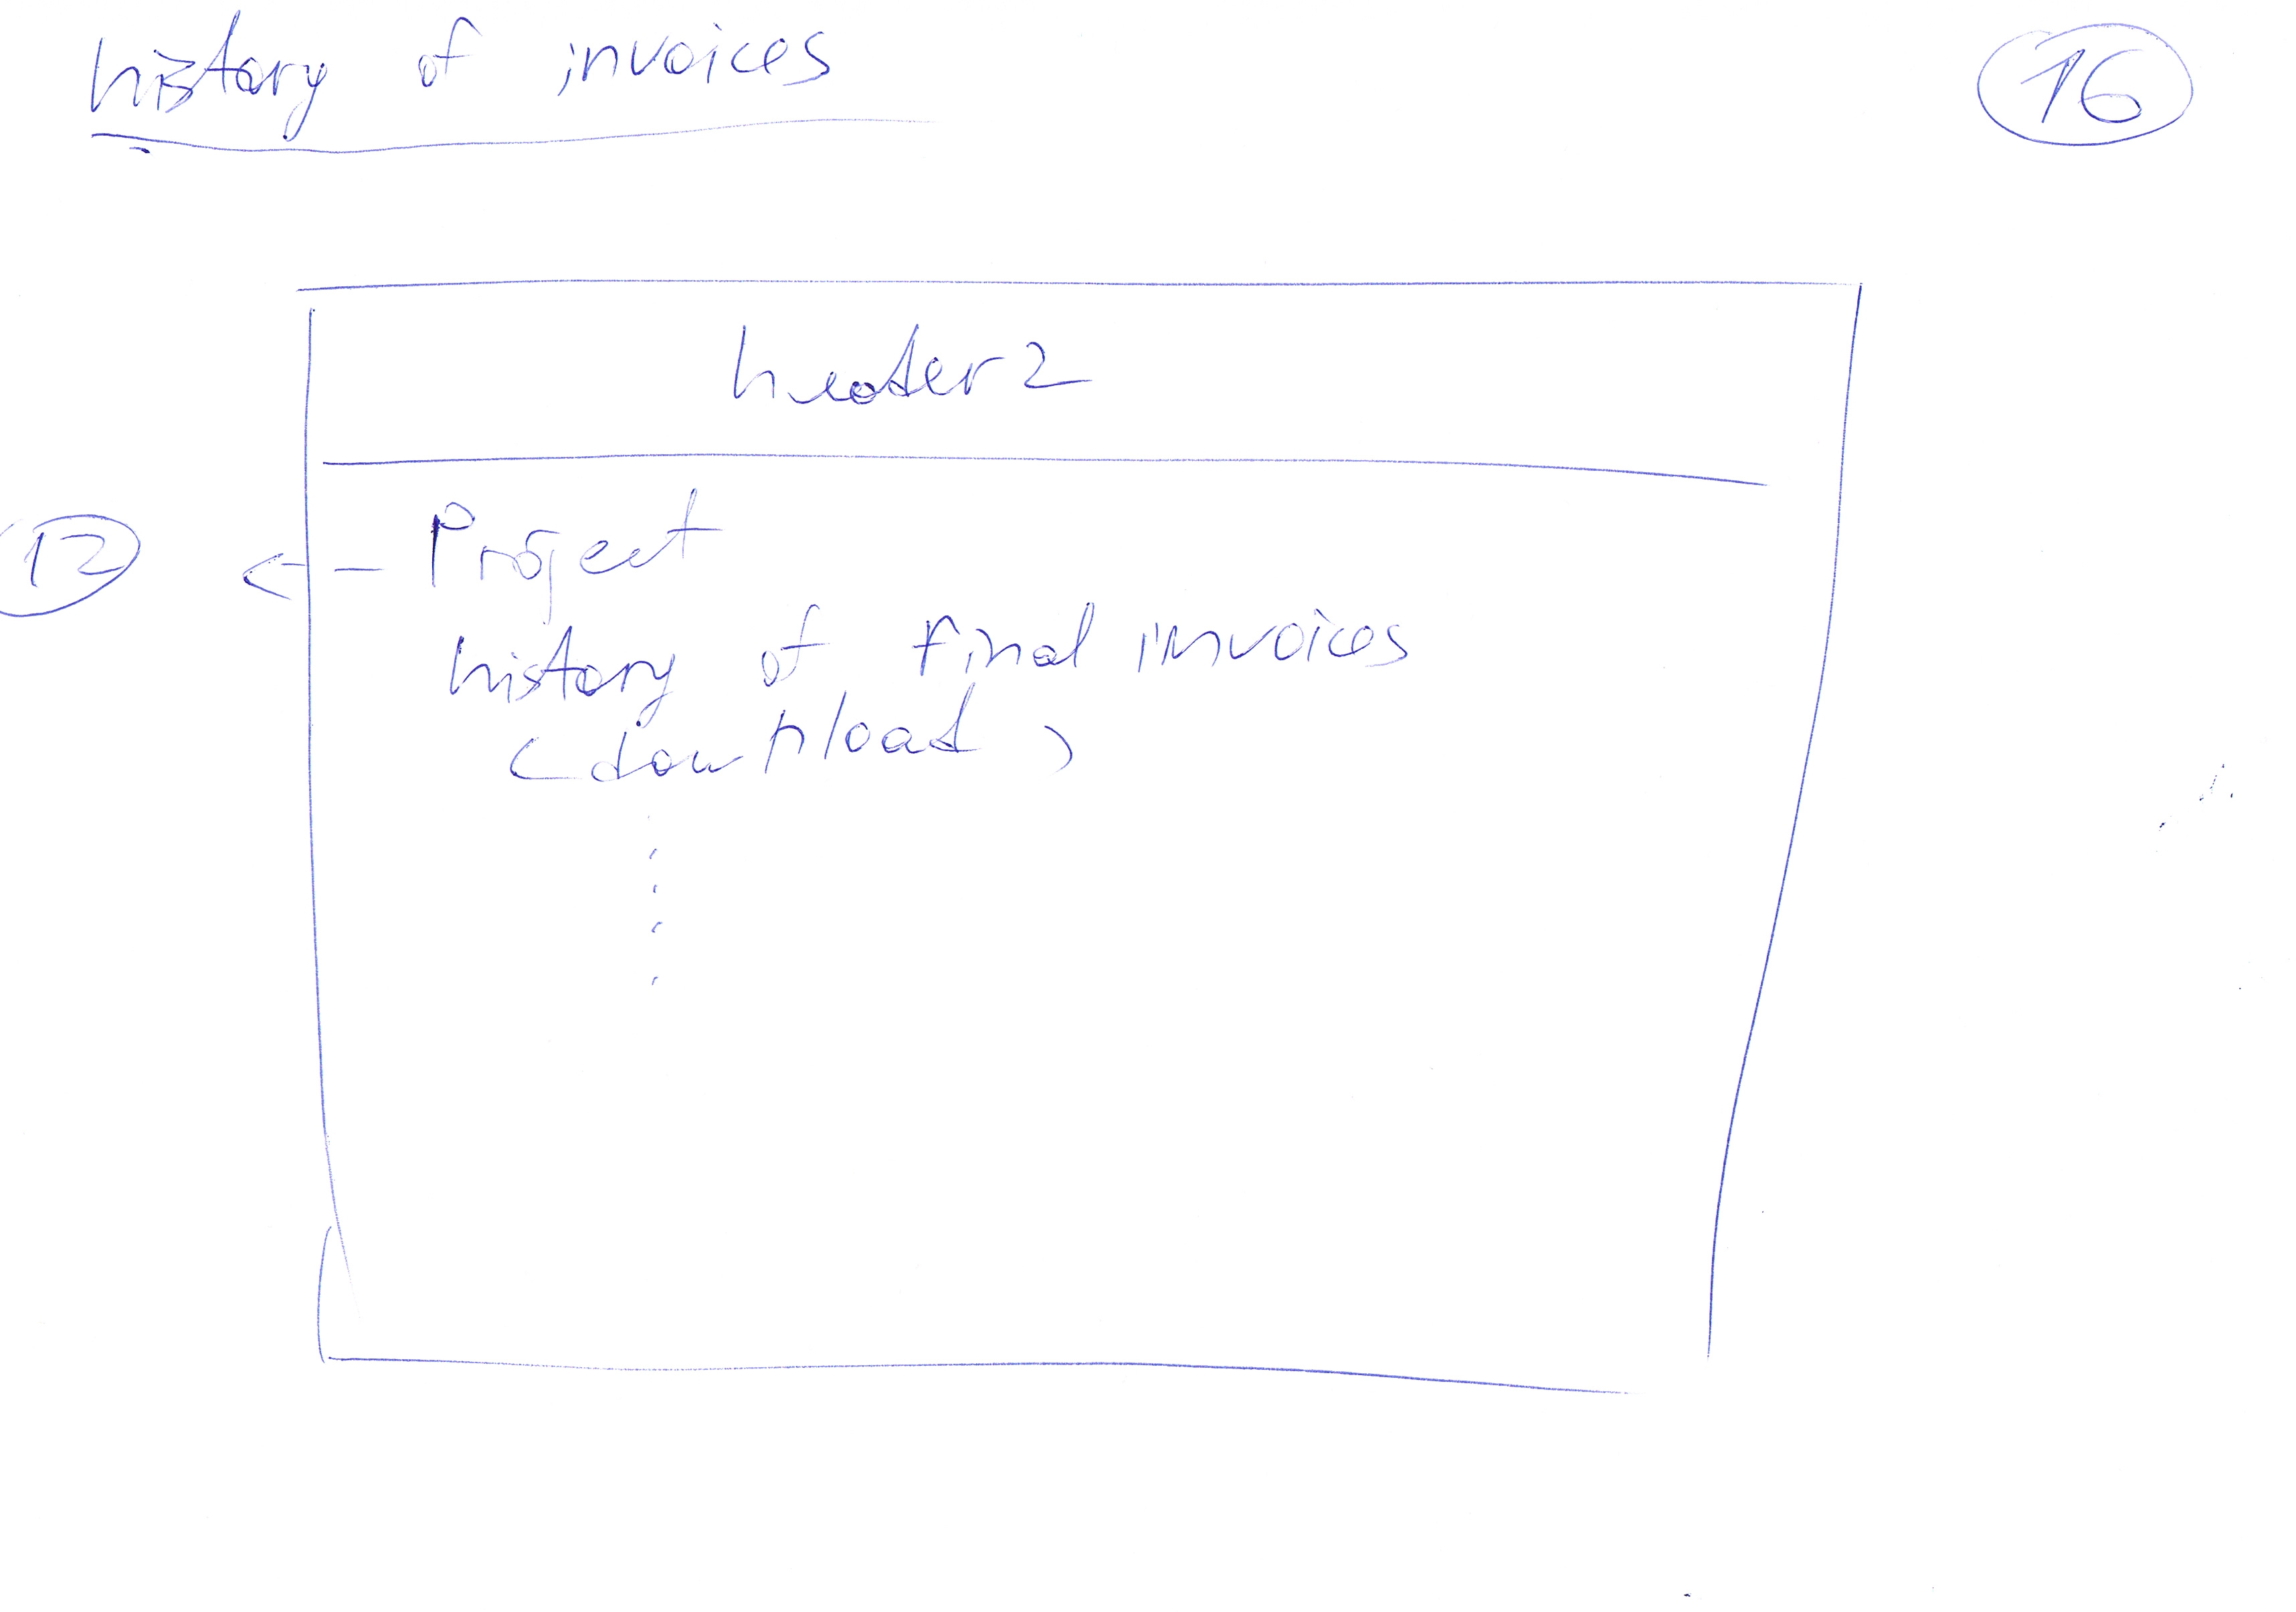 history of invoices
16
header 2
12
<- - Project
history of final invoices
(download)